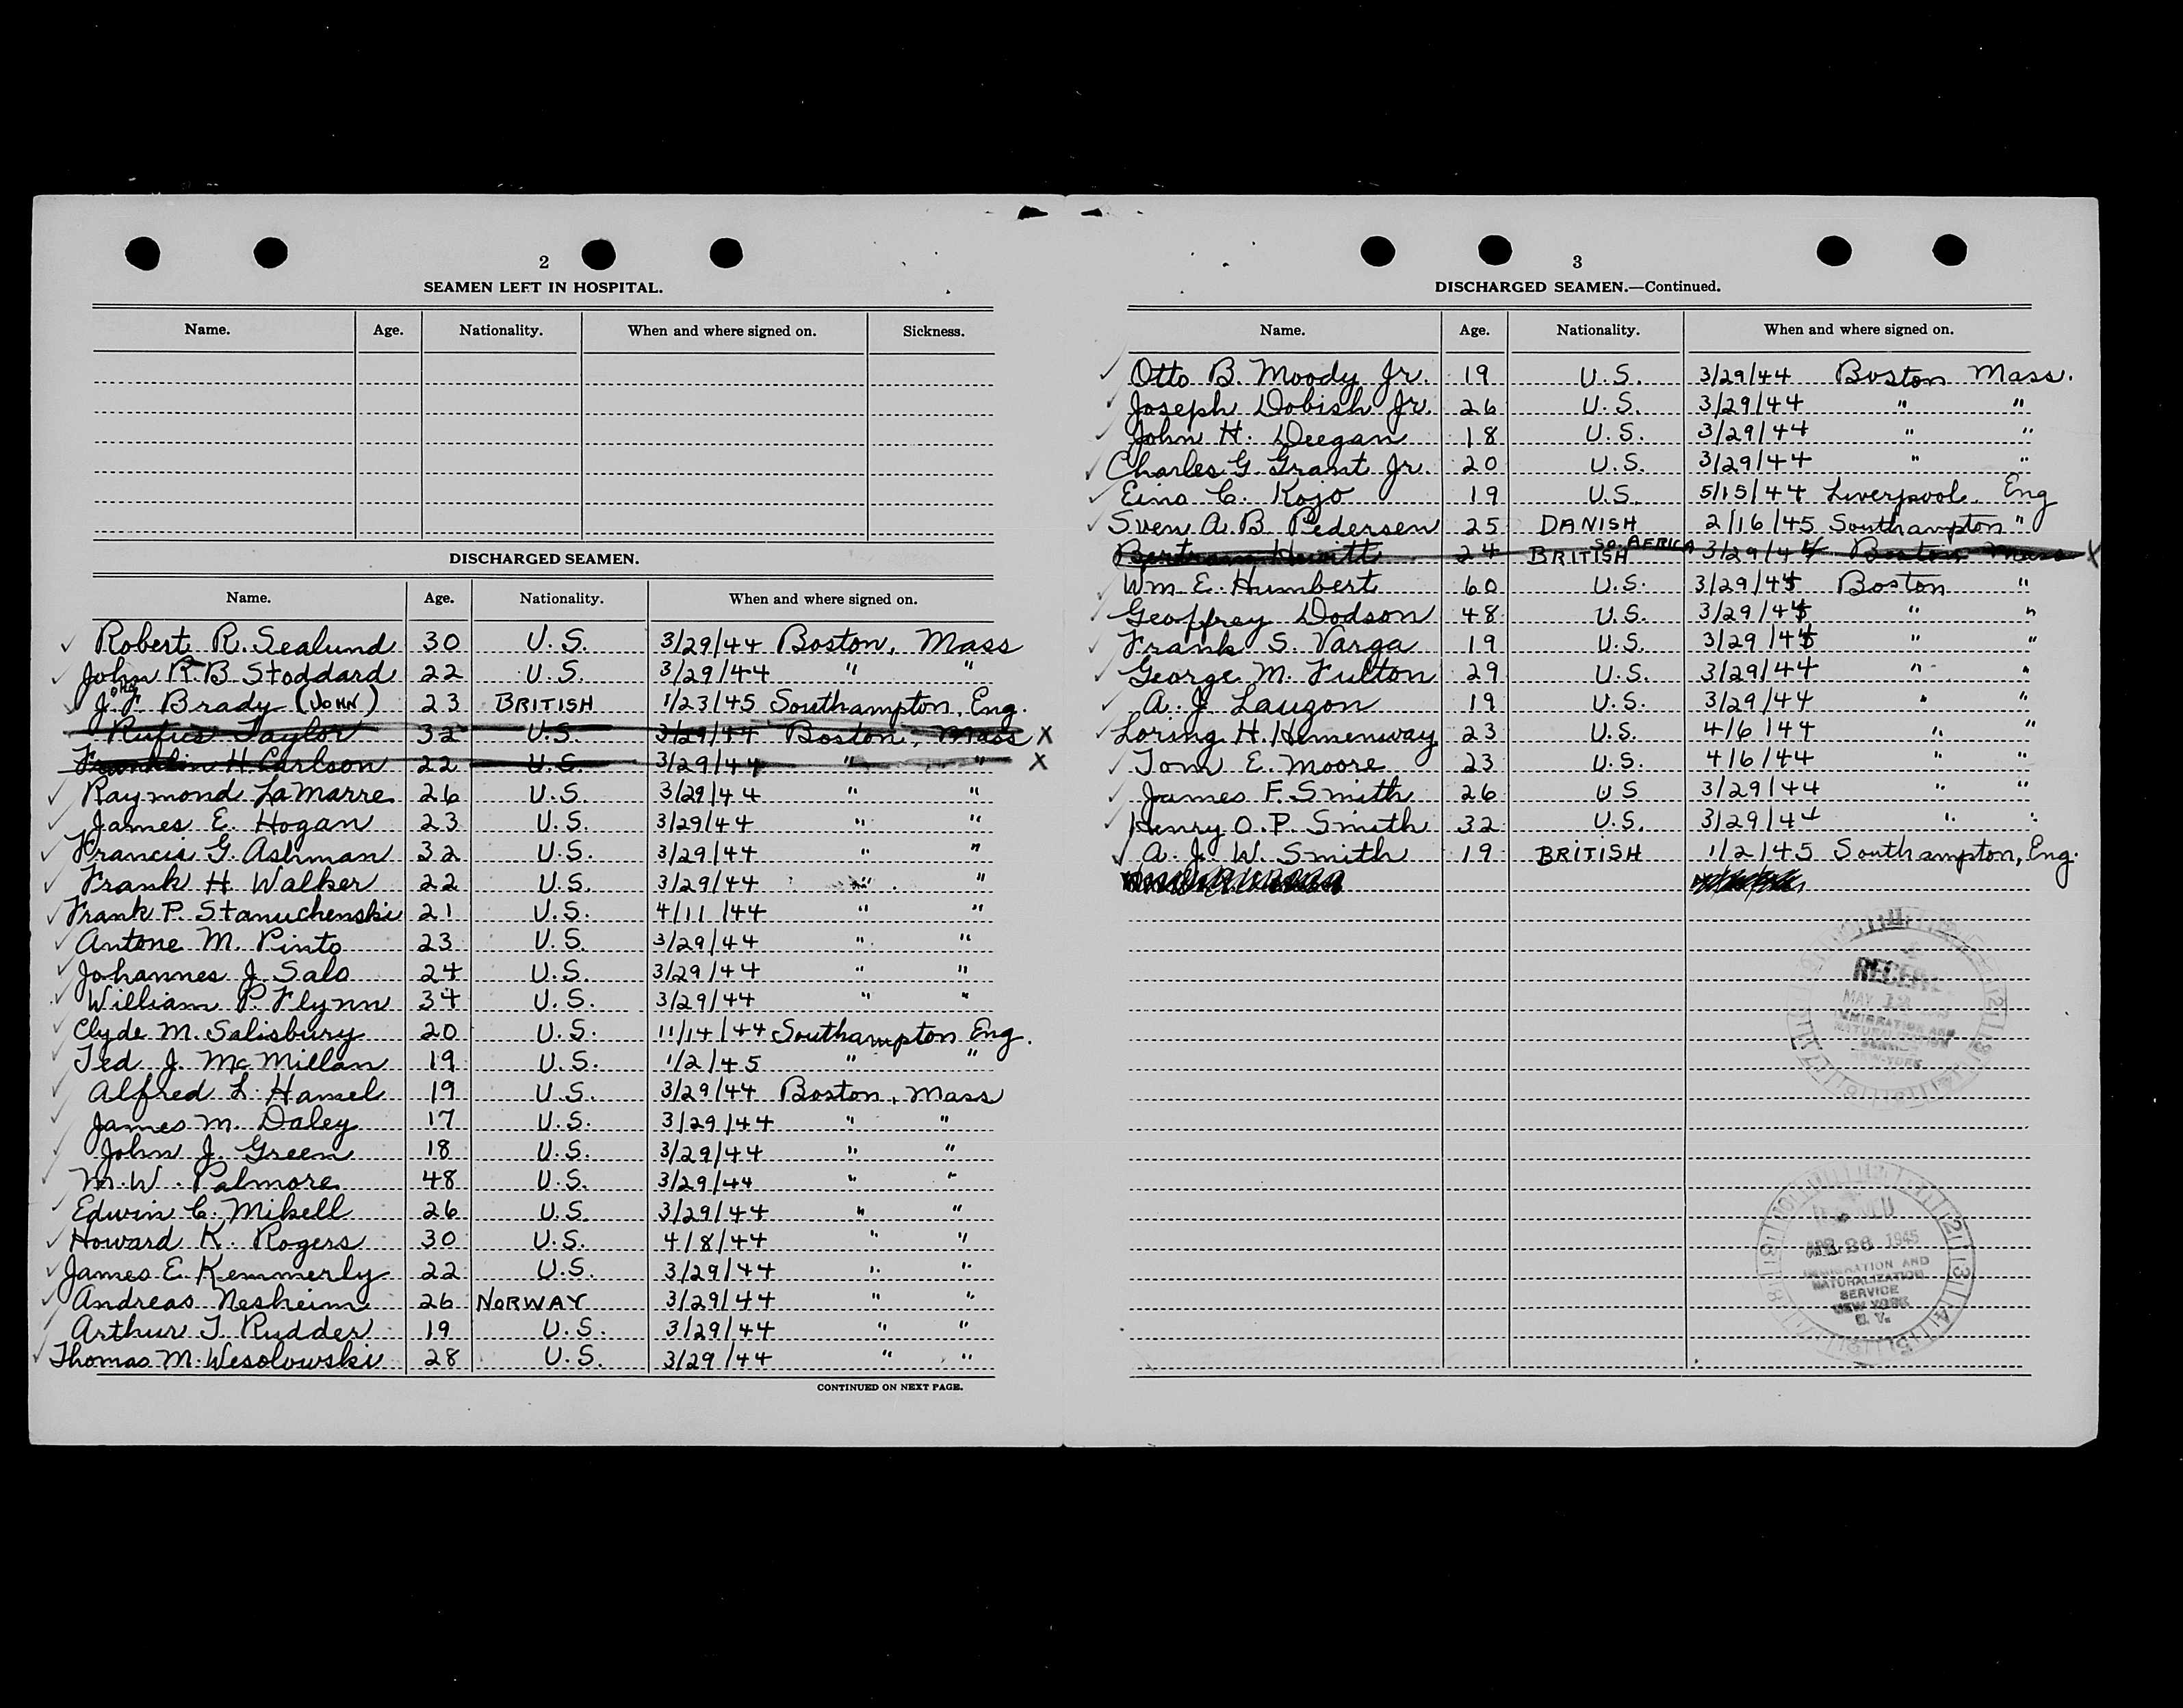 2
SEAMEN LEFT IN HOSPITAL.
Name. Age. Nationality. When and where signed on. Sickness.
DISCHARGED SEAMEN.
Name. Age. Nationality. When and where signed on.
Robert R. Sealund 30 U.S. 3/29/44 Boston, Mass
John R.B. Stoddard 22 U.S. 3/29/44 " "
J. F. Brady (JOHN) 23 BRITISH 1/23/45 Southampton, Eng.
Rufus Taylor 32 U.S. 3/29/44 Boston, Mass X
Franklin H. Carlson 22 U.S. 3/29/44 " " X
Raymond LaMarre 26 U.S. 3/29/44 " "
James E. Hogan 23 U.S. 3/29/44 " "
Francis G. Ashman 32 U.S. 3/29/44 " "
Frank H Walker 22 U.S. 3/29/44 " "
Frank P. Stanuchenski 21 U.S. 4/11/44 " "
Antone M. Pinto 23 U.S. 3/29/44 " "
Johannes J. Salo 24 U.S. 3/29/44 " "
William P. Flynn 34 U.S. 3/29/44 " "
Clyde M. Salisbury 20 U.S. 11/14/44 Southampton Eng.
Ted J. McMillan 19 U.S. 1/2/45 " "
Alfred L. Hamel 19 U.S. 3/29/44 Boston, Mass
James M. Daley 17 U.S. 3/29/44 " "
John J. Green 18 U.S. 3/29/44 " "
M.W. Palmore 48 U.S. 3/29/44 " "
Edwin C. Mikell 26 U.S. 3/29/44 " "
Howard K. Rogers 30 U.S. 4/8/44 " "
James E. Kemmerly 22 U.S. 3/29/44 " "
Andreas Nesheim 26 NORWAY 3/29/44 " "
Arthur T. Rudder 19 U.S. 3/29/44 " "
Thomas M. Wesolowski 28 U.S. 3/29/44 " "
CONTINUED ON NEXT PAGE.
3
DISCHARGED SEAMEN.—Continued.
Name. Age. Nationality. When and where signed on.
Otto B. Moody Jr. 19 U.S. 3/29/44 Boston Mass.
Joseph Dobish Jr. 26 U.S. 3/29/44 " "
John H. Deegan 18 U.S. 3/29/44 " "
Charles G. Grant Jr. 20 U.S. 3/29/44 " "
Eino C. Kojo 19 U.S. 5/15/44 Liverpool, Eng
Sven A. B. Pedersen 25 DANISH 2/16/45 Southampton "
Bertram Hewitt 24 BRITISH SO. AFRICA 3/29/44 Boston Mass X
Wm. E. Humbert 60 U.S. 3/29/44 Boston "
Geoffrey Dodson 48 U.S. 3/29/44 " "
Frank S. Varga 19 U.S. 3/29/44 " "
George M. Fulton 29 U.S. 3/29/44 " "
A. J. Lauzon 19 U.S. 3/29/44 " "
Loring H. Himenway 23 U.S. 4/6/44 " "
Tom E. Moore 23 U.S. 4/6/44 " "
James F. Smith 26 U S 3/29/44 " "
Henry O.P. Smith 32 U.S. 3/29/44 " "
A. J. W. Smith 19 BRITISH 1/2/45 Southampton, Eng.
MAY
IMMIGRATION AND
NATURALIZATION
SERVICE
NEW YORK
1945
IMMIGRATION AND
NATURALIZATION
SERVICE
NEW YORK
N. Y.